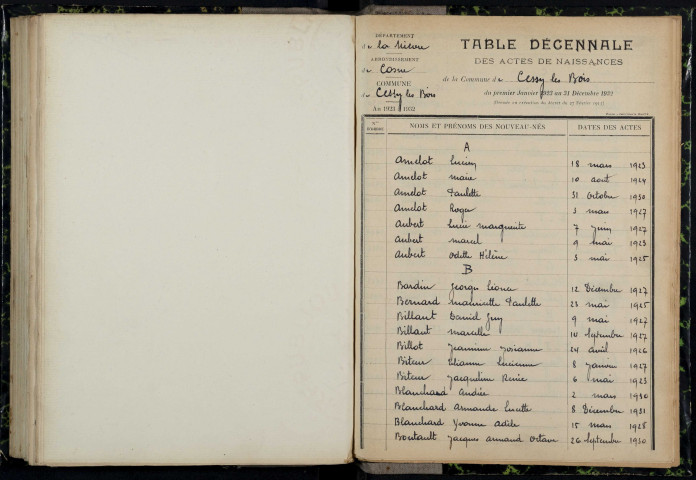 DÉPARTEMENT
de la Nièvre
ARRONDISSEMENT
de Cosne
COMMUNE
de Cessy les Bois
An 1923 1932
TABLE DÉCENNALE
DES ACTES DE NAISSANCES
de la Commune de Cessy les Bois
du premier Janvier 1923 au 31 Décembre 1932
NOMS ET PRÉNOMS DES NOUVEAU-NÉS DATES DES ACTES
A
Amelot Lucien 18 mars 1923
Amelot Marie 10 août 1924
Amelot Paulette 31 Octobre 1930
Amelot Roger 3 mars 1927
Aubert Lucie Marguerite 7 juin 1927
Aubert Marcel 9 mai 1923
Aubert Odette Hélène 3 mai 1925
B
Bardin Georges 12 Décembre 1927
Bernard Mauricette Paulette 23 mai 1925
Billaut Daniel Guy 9 mai 1927
Billaut Marcelle 10 Septembre 1927
Billot Jeannine Josianne 24 avril 1926
Biteur Lilianne Lucienne 8 janvier 1927
Biteur Jacqueline Renée 6 mai 1923
Blanchard Andrée 2 mars 1930
Blanchard Armande Lucette 8 Décembre 1931
Blanchard Yvonne Adèle 15 mars 1928
Boutault Jacques Armand Octave 26 Septembre 1930